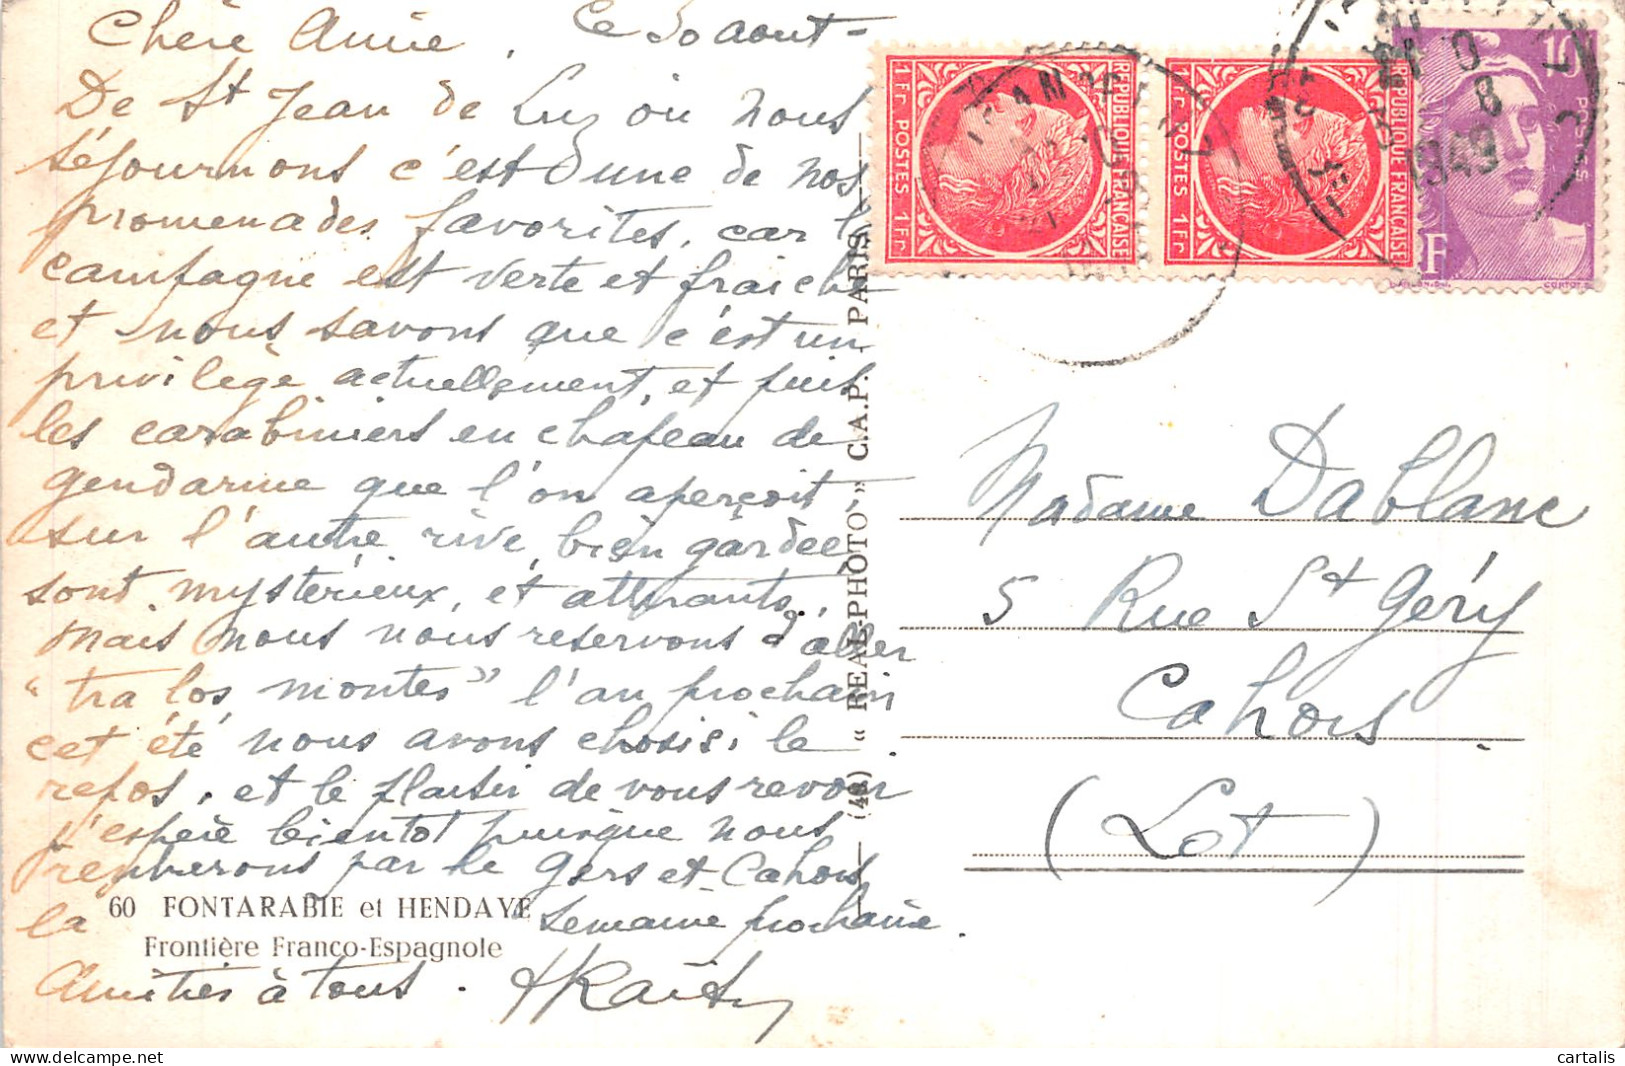 Chère Amie, Ce 30 aout -
De St Jean de Luz où nous
séjournons c'est d'une de nos
promenades favorites, car la
campagne est verte et fraiche
et nous savons que c'est un
privilège actuellement, et puis
les carabiniers en chapeau de
gendarme que l'on aperçoit
sur l'autre rive, bien gardée
sont mystérieux, et attirants,
mais nous nous reservons d'aller
"tra los montes" l'an prochain
cet été nous avons choisi le
repos, et le plaisir de vous revoir
j'espère bientot puisque nous
rentrerons par le Gers et Cahors
la semaine prochaine.
Amitiés à tous.
60 FONTARABIE et HENDAYE
Frontière Franco-Espagnole
(49) « REAL-PHOTO » C.A.P. PARIS
1Fr POSTES 1Fr
REPUBLIQUE FRANÇAISE
1Fr POSTES 1Fr
REPUBLIQUE FRANÇAISE
10F
POSTES
RF
1949
Madame Dablanc
5 Rue St Géry
Cahors.
(Lot)
cartalis.com